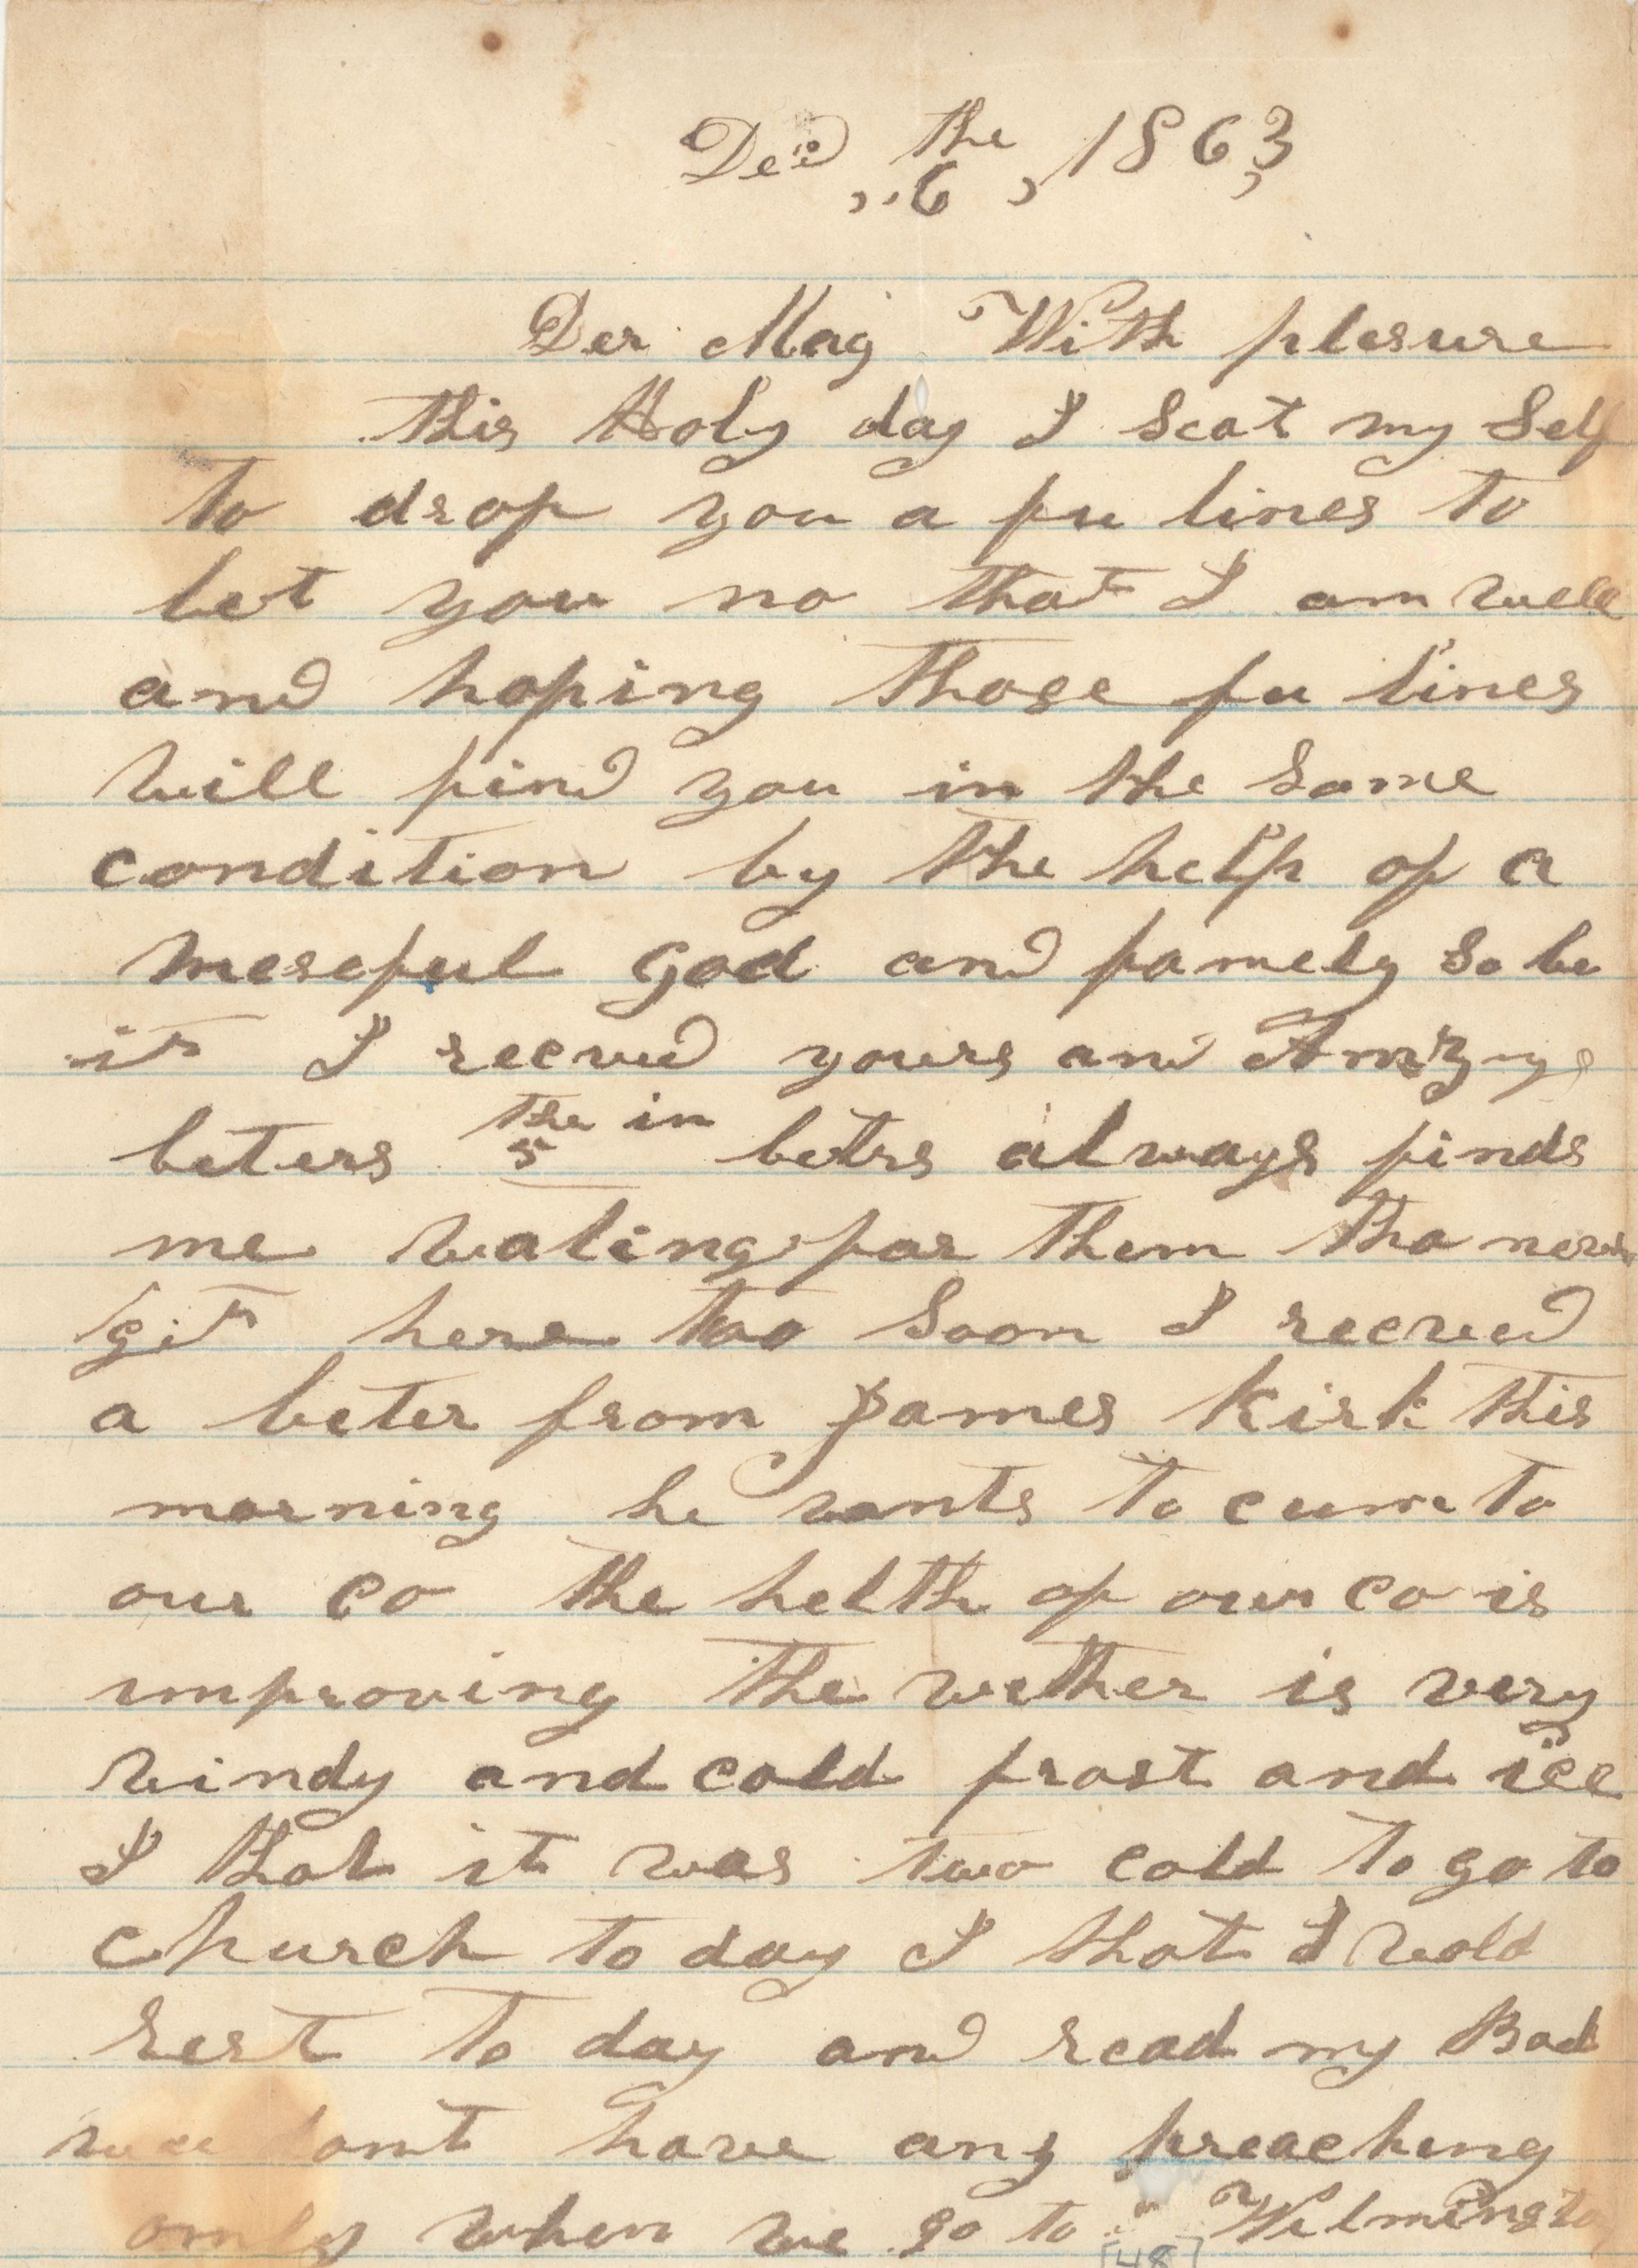 Decd the 6, 1863,
Der Mag With plesure
this Holy day I Seat my Self
to drop you a fu lines to
let you no that I am well
and hoping those fu lines
will find you in the same
condition by the help of a
merceful God and famely so be
it I recvd yours and Amzys
leters the 5 in letrs always finds
me wating for them tha never
git here too soon I recved
a leter from James Kirk this
morning he wants to cume to
our co the helth of our co is
improving the wether is very
windy and cold frost and ice
I that it was two cold to go to
church to day I that I wold
rest to day and read my Book
wee dont have any preaching
only when we go to Wilmington
[48]